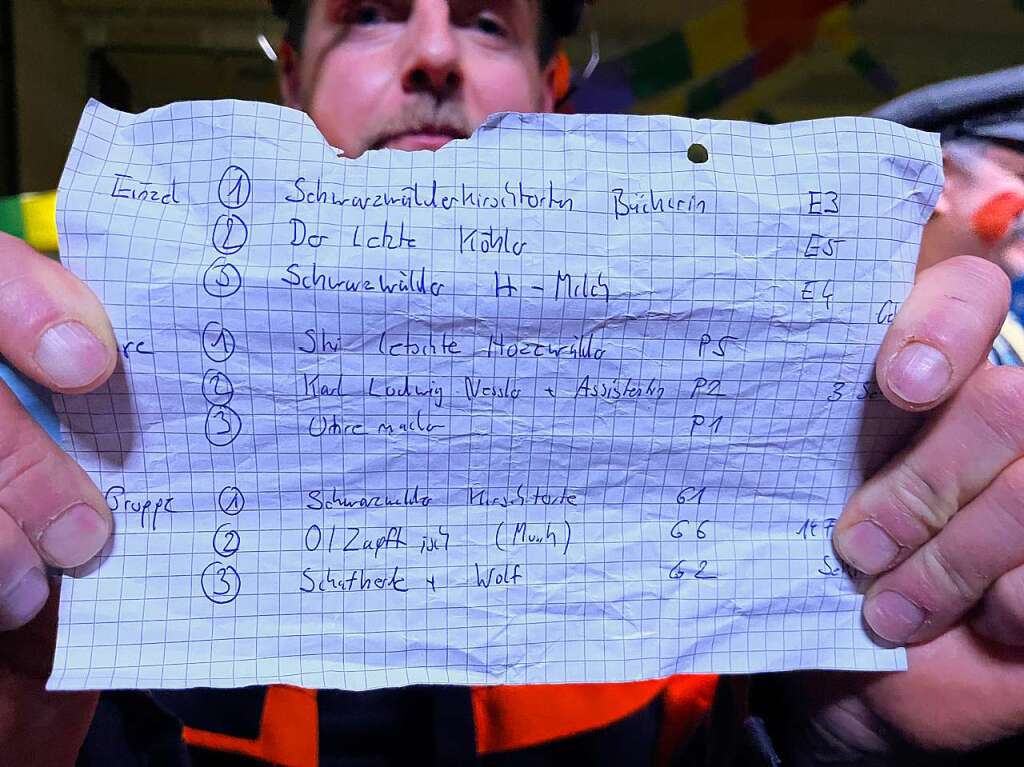 Einzel ① Schwarzwälderkirschtorten Bäckerin E3
② Der letzte Köhler E5
③ Schwarzwälder H-Milch E4
① Ski P5
② Karl Ludwig Nessler + Assistentin P2 3
③ Uhremacher P1
Gruppe ① Schwarzwälder Kirschtorte G1
② O'Zapft isch G6
③ Schafherde + Wolf G2